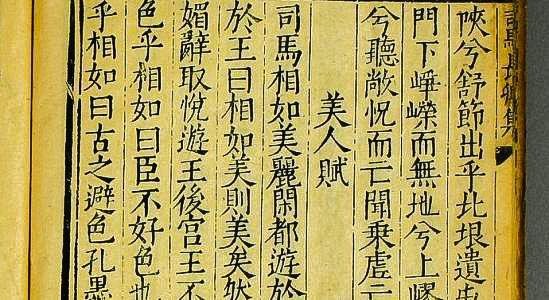 馬長卿集
陜兮舒節出乎北垠遺屯
門下崢嶸而無地兮上嵺
兮聽敞怳而亡聞乘虛亡
美人賦
司馬相如美麗閑都遊於
於王曰相如美則美矣然
媚辭取悅遊王後宮王不
色乎相如曰臣不好色也
乎相如曰古之避色孔墨